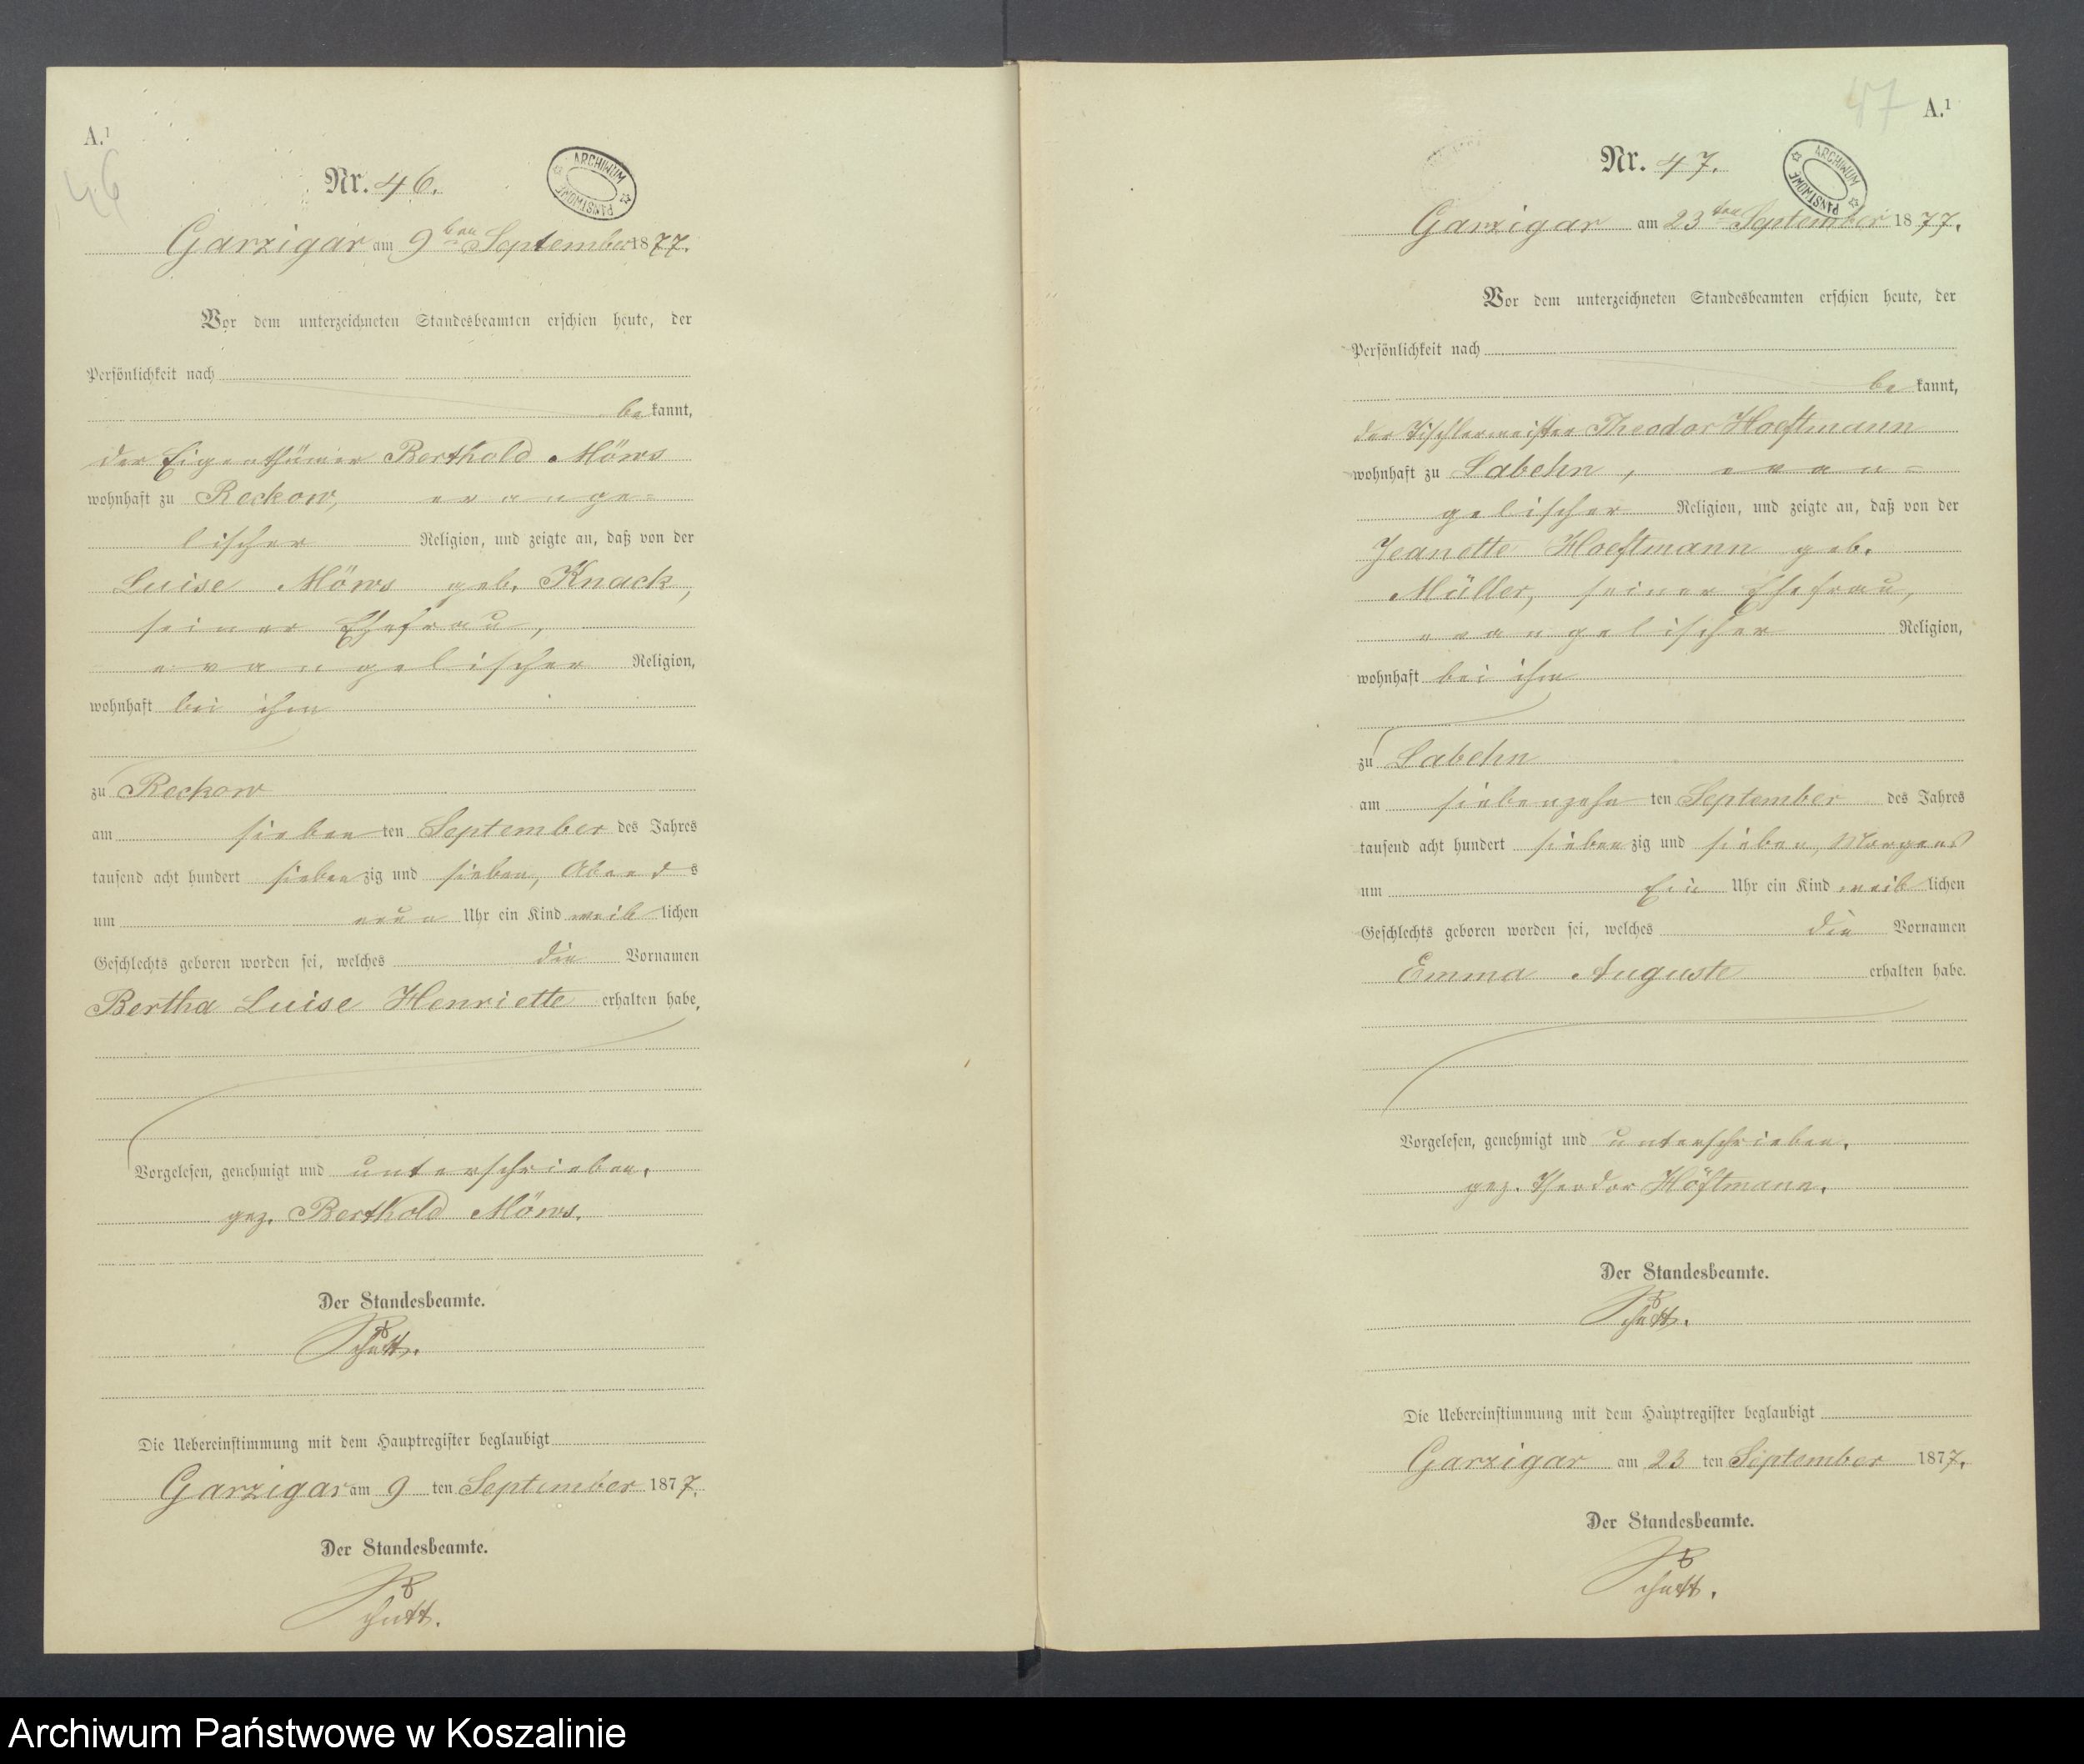 A.¹
46
Nr. 46.
ARCHIWUM PAŃSTWOWE
Garzigar am 9ten September 1877.
Vor dem unterzeichneten Standesbeamten erschien heute, der
Persönlichkeit nach
bekannt,
der Eigenthümer Berthold Möws
wohnhaft zu Reckow, evange=
lischer Religion, und zeigte an, daß von der
Luise Möws geb. Knack,
seiner Ehefrau,
evangelischer Religion,
wohnhaft bei ihm
zu Reckow
am siebenten September des Jahres
tausend acht hundert siebenzig und sieben, Abends
um neun Uhr ein Kind weiblichen
Geschlechts geboren worden sei, welches die Vornamen
Bertha Luise Henriette erhalten habe.
Vorgelesen, genehmigt und unterschrieben.
gez. Berthold Möws.
Der Standesbeamte.
Die Uebereinstimmung mit dem Hauptregister beglaubigt
Garzigar am 9 ten September 1877.
Der Standesbeamte.
47
A.¹
Nr. 47.
ARCHIWUM PAŃSTWOWE
Garzigar am 23ten September 1877.
Vor dem unterzeichneten Standesbeamten erschien heute, der
Persönlichkeit nach
bekannt,
der Tischlermeister Theodor Hoeftmann
wohnhaft zu Labehn, evan=
gelischer Religion, und zeigte an, daß von der
Jeanette Hoeftmann geb.
Müller, seiner Ehefrau,
evangelischer Religion,
wohnhaft bei ihm
zu Labehn
am siebenzehnten September des Jahres
tausend acht hundert siebenzig und sieben, Morgens
um Ein Uhr ein Kind weiblichen
Geschlechts geboren worden sei, welches die Vornamen
Emma Auguste erhalten habe.
Vorgelesen, genehmigt und unterschrieben.
gez. Theodor Höftmann.
Der Standesbeamte.
Die Uebereinstimmung mit dem Hauptregister beglaubigt
Garzigar am 23 ten September 1877.
Der Standesbeamte.
Archiwum Państwowe w Koszalinie